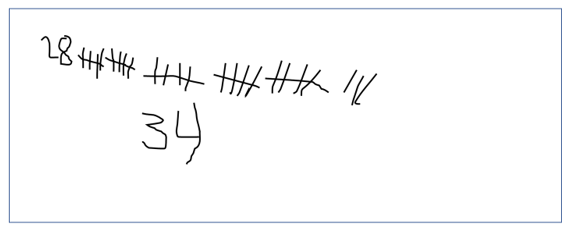 28
34